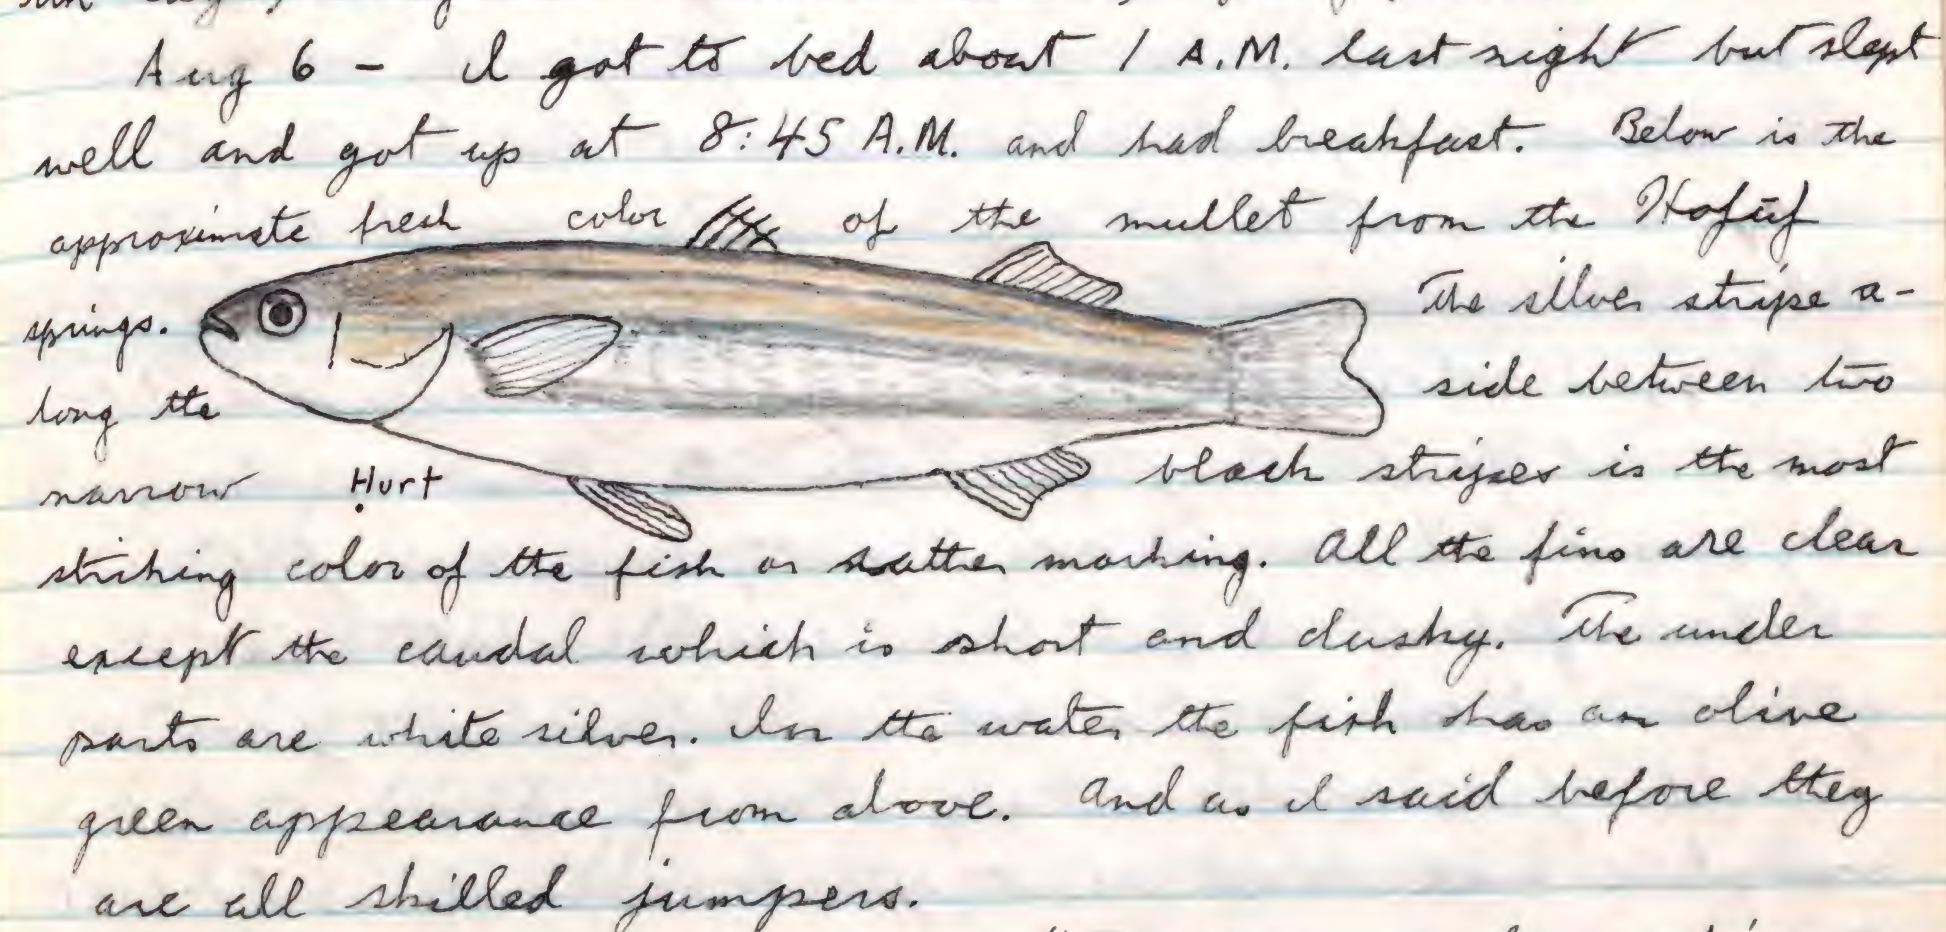 Aug 6 - I got to bed about 1 A.M. last night but slept
well and got up at 8:45 A.M. and had breakfast. Below is the
approximate fresh color of the mullet from the Hofūf
springs. The silver stripe a-
long the side between two
narrow black stripes is the most
Hurt
striking color of the fish or rather marking. All the fins are clear
except the caudal which is short and dusky. The under
parts are white silver. In the water the fish has an olive
green appearance from above. And as I said before they
are all skilled jumpers.